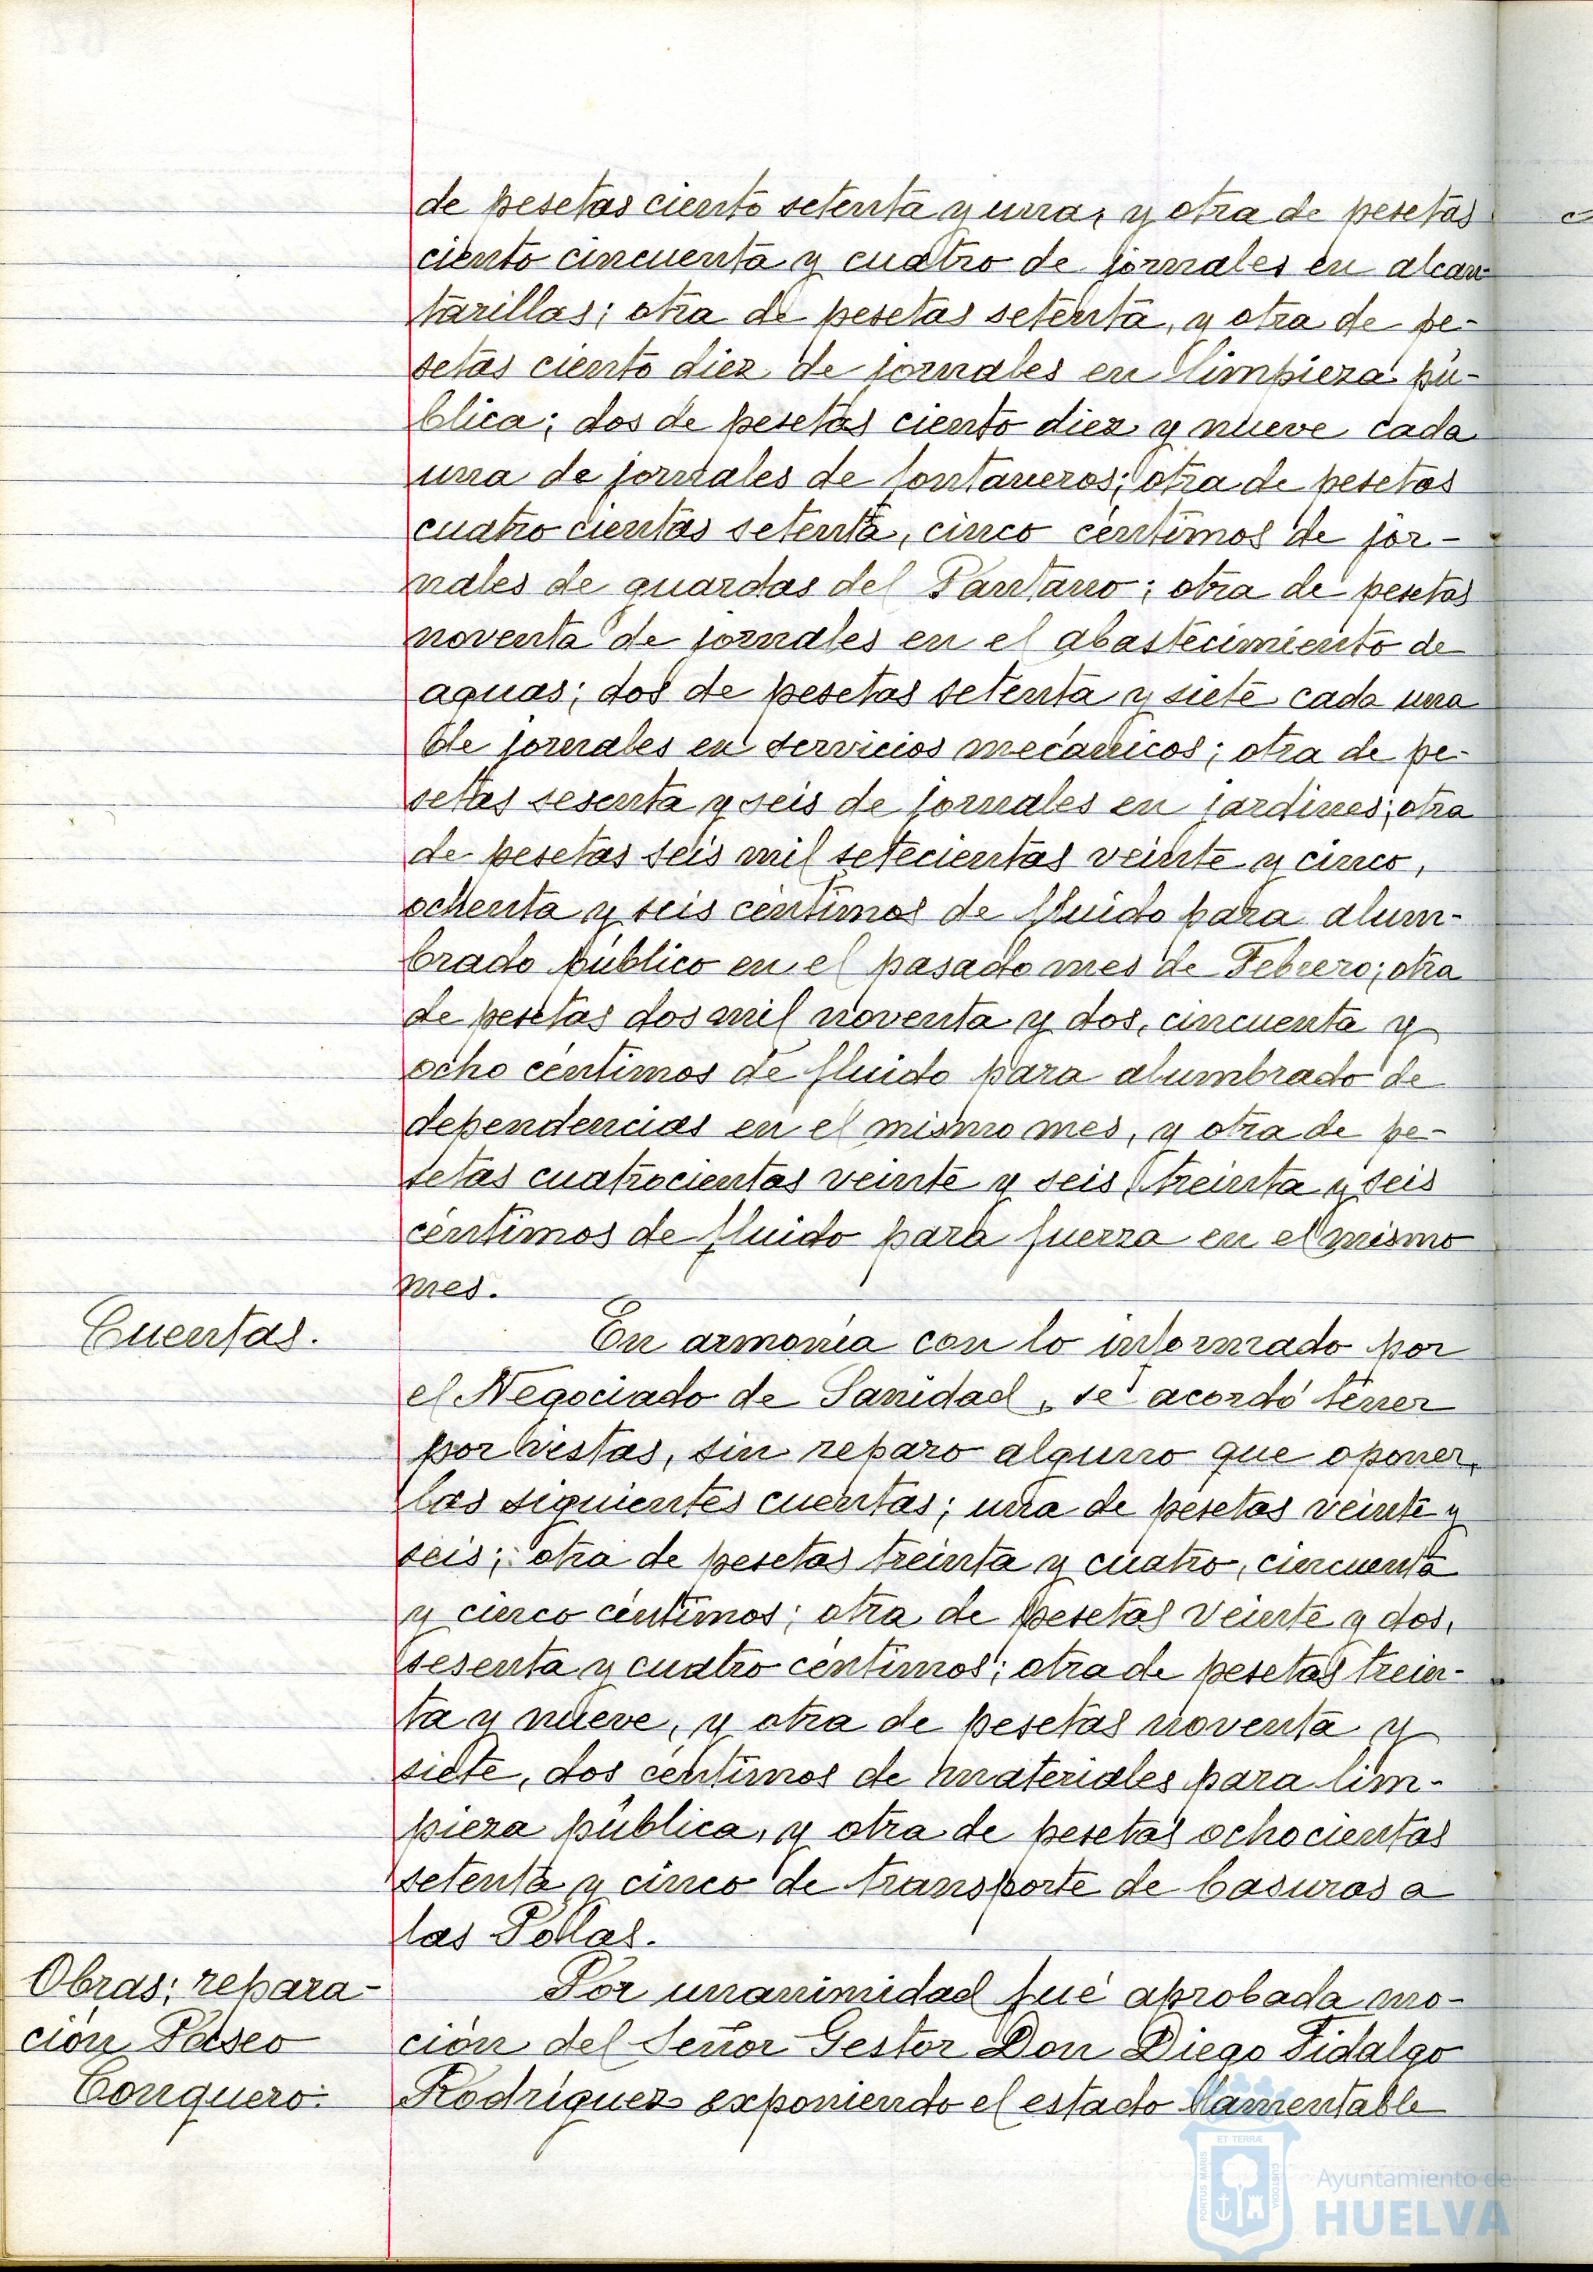 de pesetas ciento setenta y una, y otra de pesetas
ciento cincuenta y cuatro de jornales en alcan-
tarillas; otra de pesetas setenta, y otra de pe-
setas ciento diez de jornales en limpieza pú-
blica; dos de pesetas ciento diez y nueve cada
una de jornales de fontaneros; otra de pesetas
cuatro cientas setenta, cinco céntimos de jor-
nales de guardas del Pantano; otra de pesetas
noventa de jornales en el abastecimiento de
aguas; dos de pesetas setenta y siete cada una
de jornales en servicios mecánicos; otra de pe-
setas sesenta y seis de jornales en jardines; otra
de pesetas seis mil setecientas veinte y cinco,
ochenta y seis céntimos de fluido para alum-
brado público en el pasado mes de Febrero; otra
de pesetas dos mil noventa y dos, cincuenta y
ocho céntimos de fluido para alumbrado de
dependencias en el mismo mes, y otra de pe-
setas cuatrocientas veinte y seis, treinta y seis
céntimos de fluido para fuerza en el mismo
mes.
Cuentas.
En armonía con lo informado por
el Negociado de Sanidad, se acordó tener
por vistas, sin reparo alguno que oponer,
las siguientes cuentas; una de pesetas veinte y
seis; otra de pesetas treinta y cuatro, cincuenta
y cinco céntimos; otra de pesetas veinte y dos,
sesenta y cuatro céntimos; otra de pesetas trein-
ta y nueve, y otra de pesetas noventa y
siete, dos céntimos de materiales para lim-
pieza pública, y otra de pesetas ochocientas
setenta y cinco de transporte de basuras a
las Pollas.
Obras; repara-
ción Paseo
Conquero.
Por unanimidad fué aprobada mo-
ción del Señor Gestor Don Diego Fidalgo
Rodríguez exponiendo el estado lamentable
PORTUS MARIS
ET TERRÆ
CUSTODIA
Ayuntamiento de
HUELVA